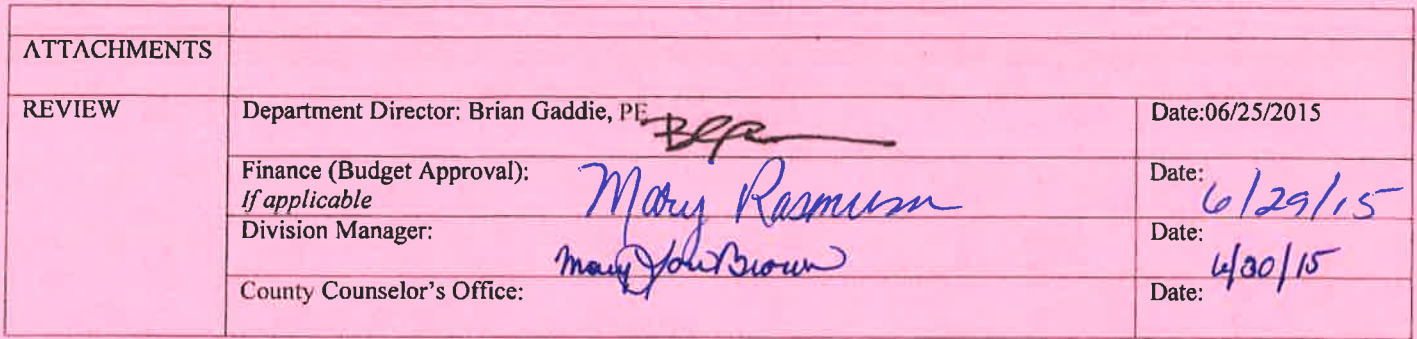 ATTACHMENTS
REVIEW
Department Director: Brian Gaddie, PE
Date:06/25/2015
Finance (Budget Approval):
If applicable
Mary Rasmussen
Date: 6/29/15
Division Manager:
Mary Lou Brown
Date: 6/30/15
County Counselor's Office:
Date: